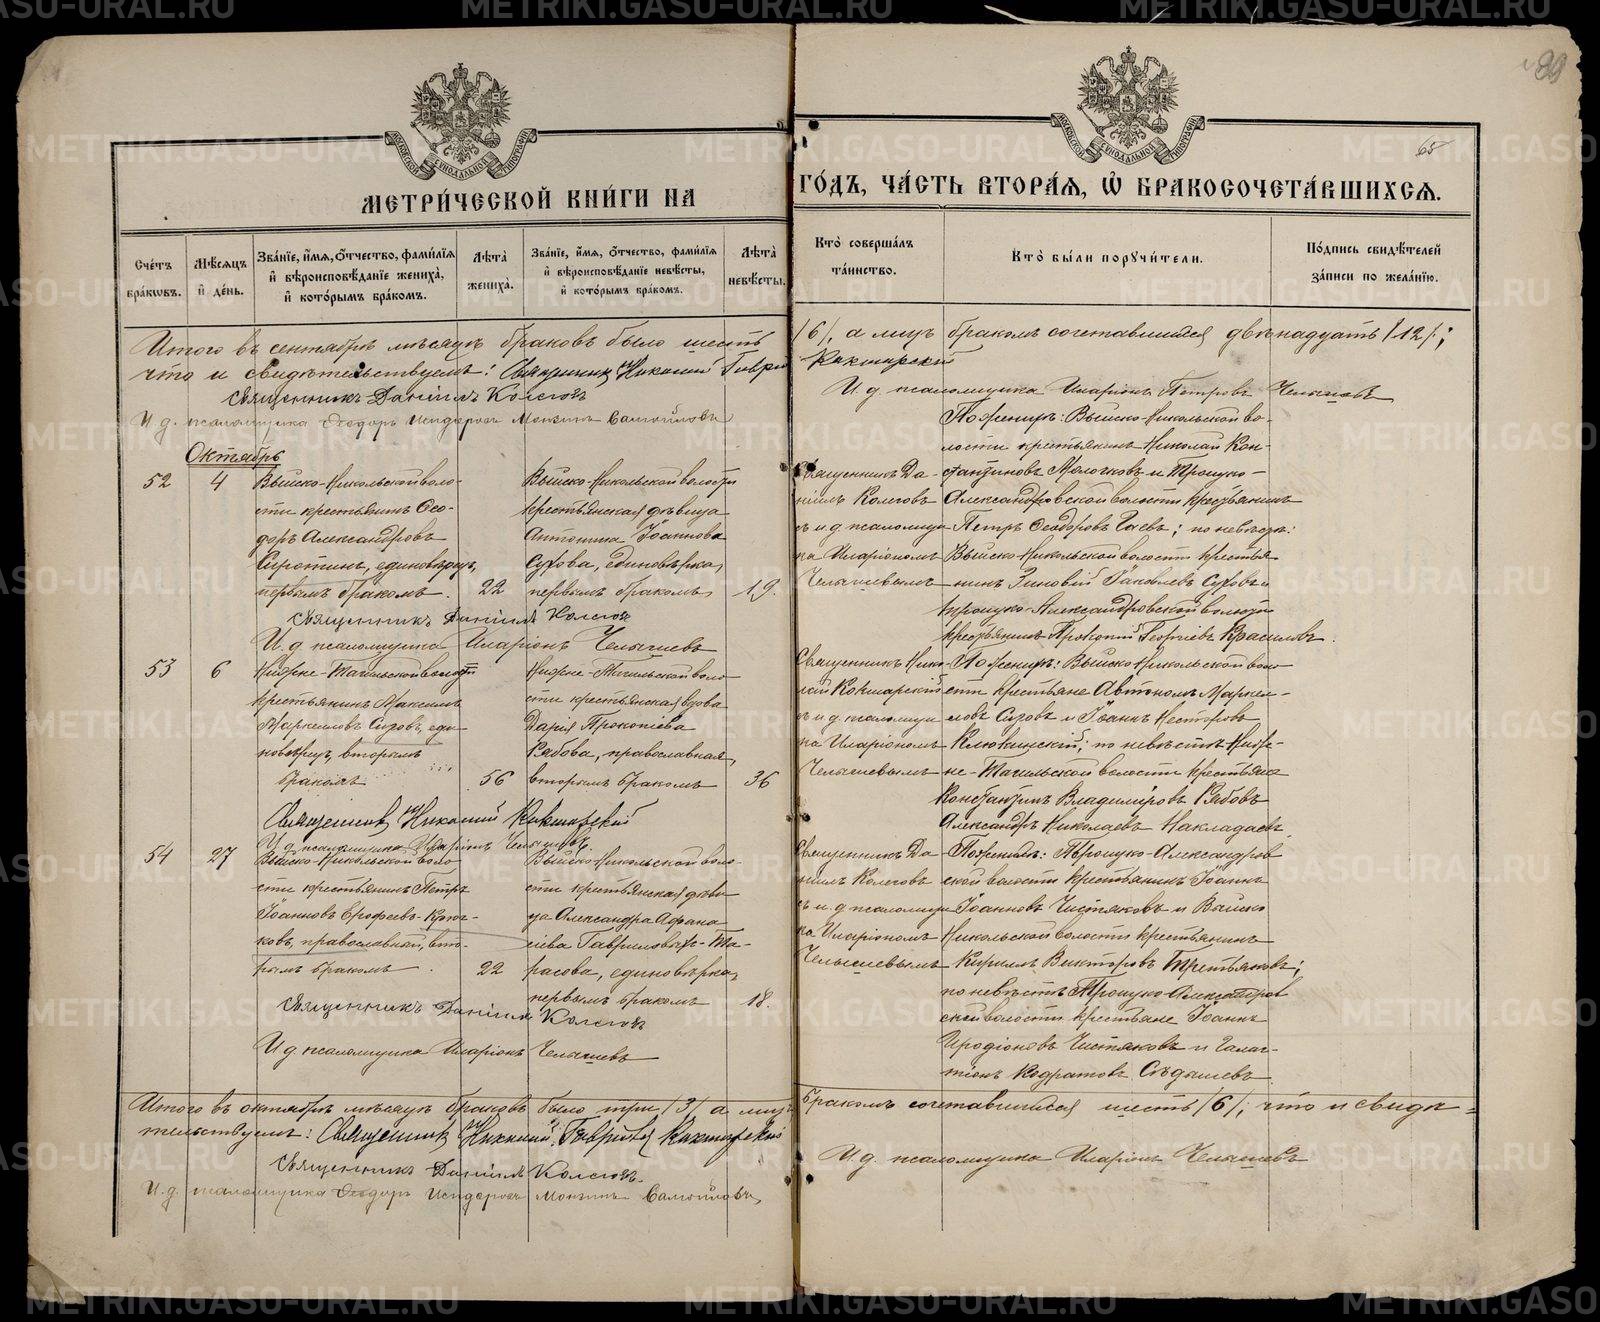 МЕТРИ́ЧЕСКОЙ КНИ́ГИ НА
ГО́ДЪ, ЧА́СТЬ ВТОРА́Я, Ѡ БРАКОСОЧЕТА́ВШИХСЯ.
65
Сче́тъ бра́кѡвъ.
Мѣ́сяцъ и҆ де́нь.
Зва́нїе, и҆́мя, ѻ҆́тчество, фами́лїя и҆ вѣроисповѣ́данїе жениха̀, и҆ кото́рымъ бра́комъ.
Лѣ́та жениха̀.
Зва́нїе, и҆́мя, ѻ҆́тчество, фами́лїя и҆ вѣроисповѣ́данїе невѣ́сты, и҆ кото́рымъ бра́комъ.
Лѣ́та невѣ́сты.
Кто̀ соверша́лъ та́инство.
Кто̀ бы́ли порꙋчи́тели.
По́дпись свидѣ́телей за́писи по жела́нїю.
Итого въ сентябрѣ мѣсяцѣ браковъ было шесть /6/, а лицъ бракомъ сочетавшихся двѣнадцать /12/;
что и свидѣтельствуемъ: Священникъ Николай
Священникъ Даніилъ Колеговъ
И. д. псаломщика Иларіонъ Петровъ Челышевъ
И. д. псаломщика Ѳеодоръ Самойловъ
Октябрь
52
4
Выйско-Никольской воло-
сти крестьянинъ Ѳео-
доръ Александровъ
Сиротинъ, единовѣрецъ,
первымъ бракомъ.
22
Выйско-Никольской волости
крестьянская дѣвица
Антонина Іоаннова
Сухова, единовѣрка,
первымъ бракомъ,
19.
Священникъ Да-
ніилъ Колеговъ
съ и. д. псаломщи
ка Иларіономъ
Челышевымъ
По женихѣ: Выйско-Никольской во-
лости крестьянинъ Николай Кон-
стантиновъ Молочковъ и Троицко-
Александровской волости крестьянинъ
Петръ Ѳеодоровъ Гаевъ; по невѣстѣ:
Выйско-Никольской волости крестья
нинъ Зиновій Іаковлевъ Суховъ и
Троицко-Александровской волости
крестьянинъ Прокопій Георгіевъ Красиловъ.
Священникъ Даніилъ Колеговъ
И. д. псаломщика Иларіонъ Челышевъ
53
6
Нижне-Тагильской волости
крестьянинъ Максимъ
Маркелловъ Суховъ, еди-
новѣрецъ, вторымъ
бракомъ
56
Нижне-Тагильской воло-
сти крестьянская вдова
Дарія Прокопіева
Рябова, православная,
вторымъ бракомъ
36
Священникъ Нико-
лай Кокшарскій
съ и. д. псаломщи
ка Иларіономъ
Челышевымъ
По женихѣ: Выйско-Никольской воло
сти крестьяне Автономъ Маркел-
ловъ Суховъ и Іоаннъ Несторовъ
Клюкинскій; по невѣстѣ Ниж-
не-Тагильской волости крестьяне
Константинъ Владиміровъ Рябовъ
Александръ Николаевъ Накладаевъ.
Священникъ Николай Кокшарскій
И. д. псаломщика Иларіонъ Челышевъ.
54
27
Выйско-Никольской воло-
сти крестьянинъ Петръ
Іоанновъ Ерофеевъ-Крюч-
ковъ, православный, вто-
рымъ бракомъ.
22
Выйско-Никольской воло-
сти крестьянская дѣви-
ца Александра Афана
сіева Гавриловыхъ-Та-
расова, единовѣрка,
первымъ бракомъ
18.
Священникъ Да-
ніилъ Колеговъ
съ и. д. псаломщи
ка Иларіономъ
Челышевымъ
По женихѣ: Троицко-Александров
ской волости крестьянинъ Іоаннъ
Іоанновъ Чистяковъ и Выйско
Никольской волости крестьянинъ
Кириллъ Викторовъ Третьяковъ;
по невѣстѣ Троицко-Александров
ской волости крестьяне Іоаннъ
Иродіоновъ Чистяковъ и Галак-
тіонъ Кодратовъ Сѣдышевъ.
Священникъ Даніилъ Колеговъ
И д псаломщика Иларіонъ Челышевъ
Итого въ октябрѣ мѣсяцѣ браковъ было три /3/ а лицъ бракомъ сочетавшихся шесть /6/; что и свидѣ-
тельствуемъ: Священникъ Николай Гавріиловъ Кокшарскій
Священникъ Даніилъ Колеговъ.
И. д. псаломщика Иларіонъ Челышевъ
И. д. псаломщика Ѳеодоръ Самойловъ
METRIKI.GASO-URAL.RU